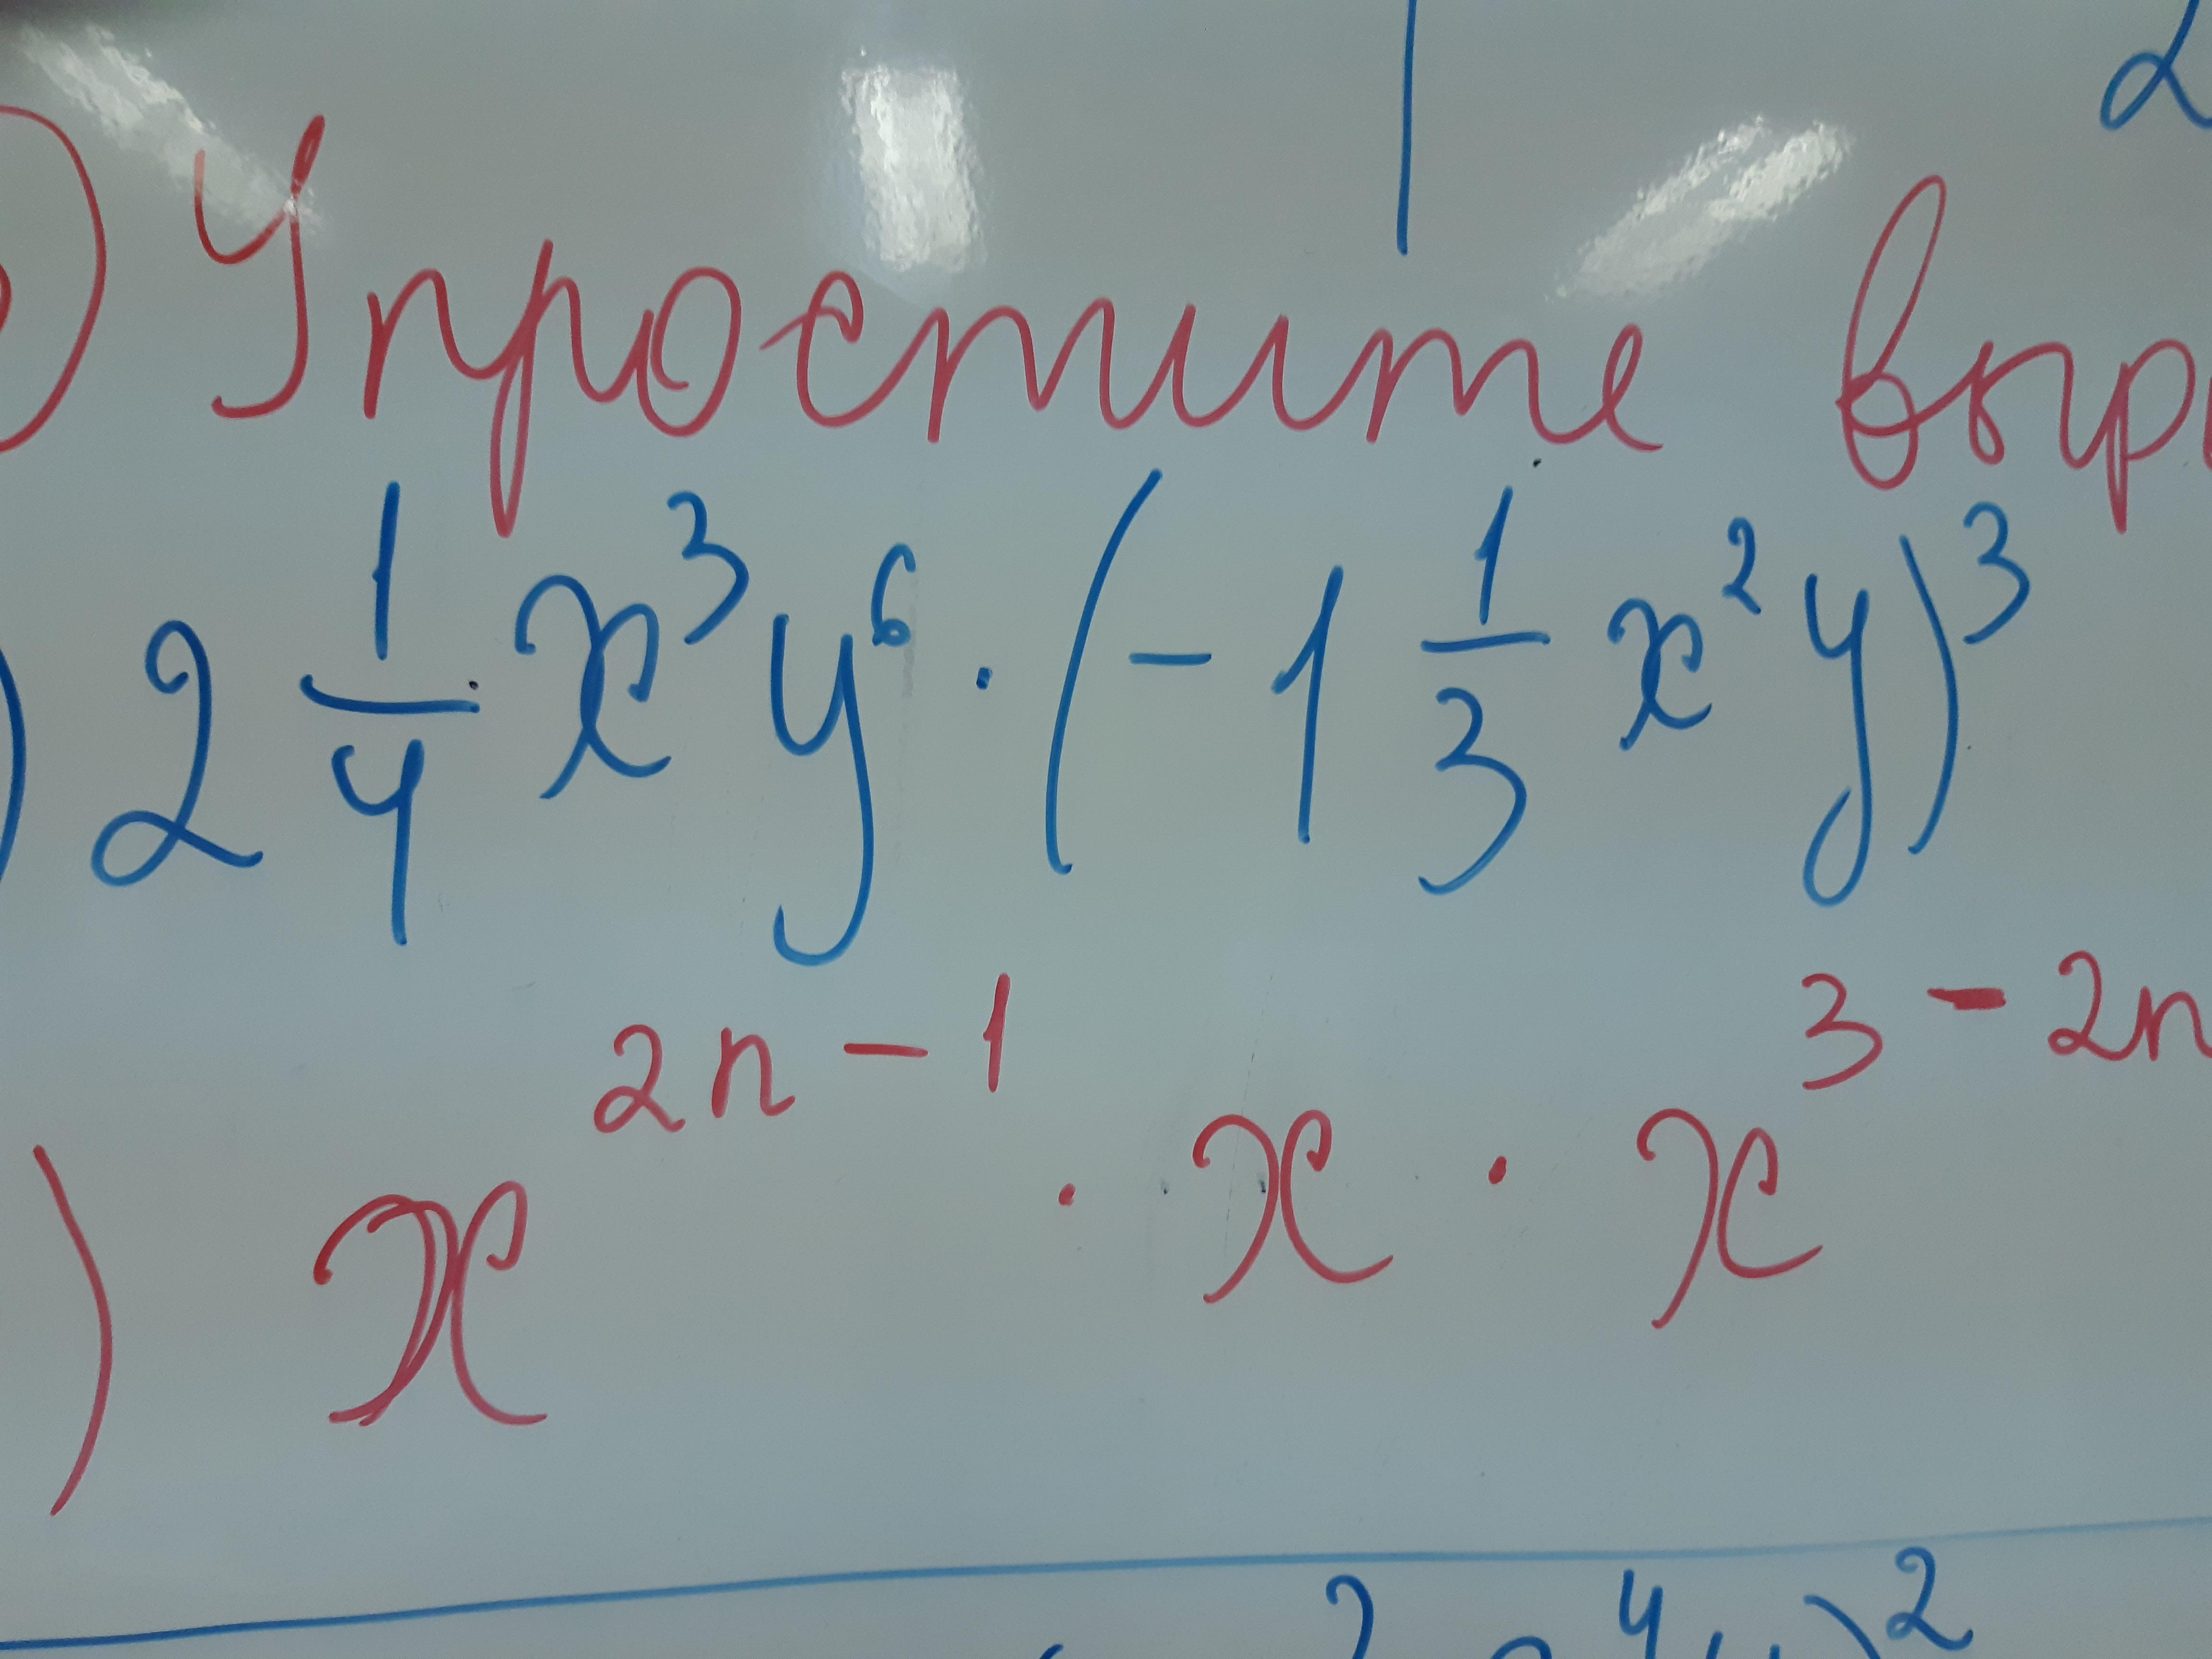 ) Упростите выр
) 2 1/4 x³y⁶ · (-1 1/3 x²y)³
) x²ⁿ⁻¹ · x · x³⁻²ⁿ